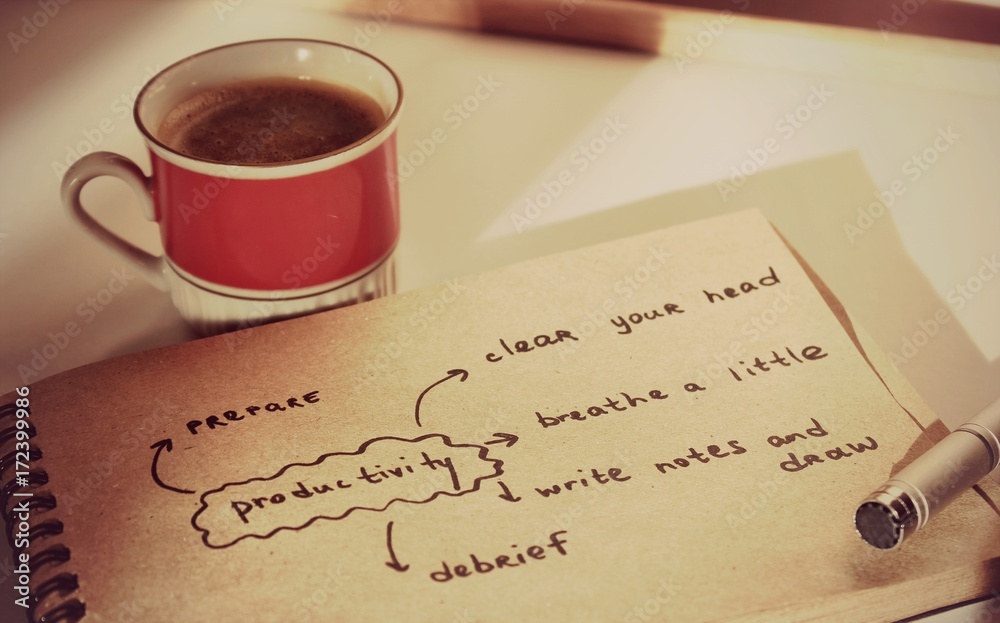 clear your head
prepare
breathe a little
productivity
write notes and
draw
debrief
Adobe Stock | 172399986